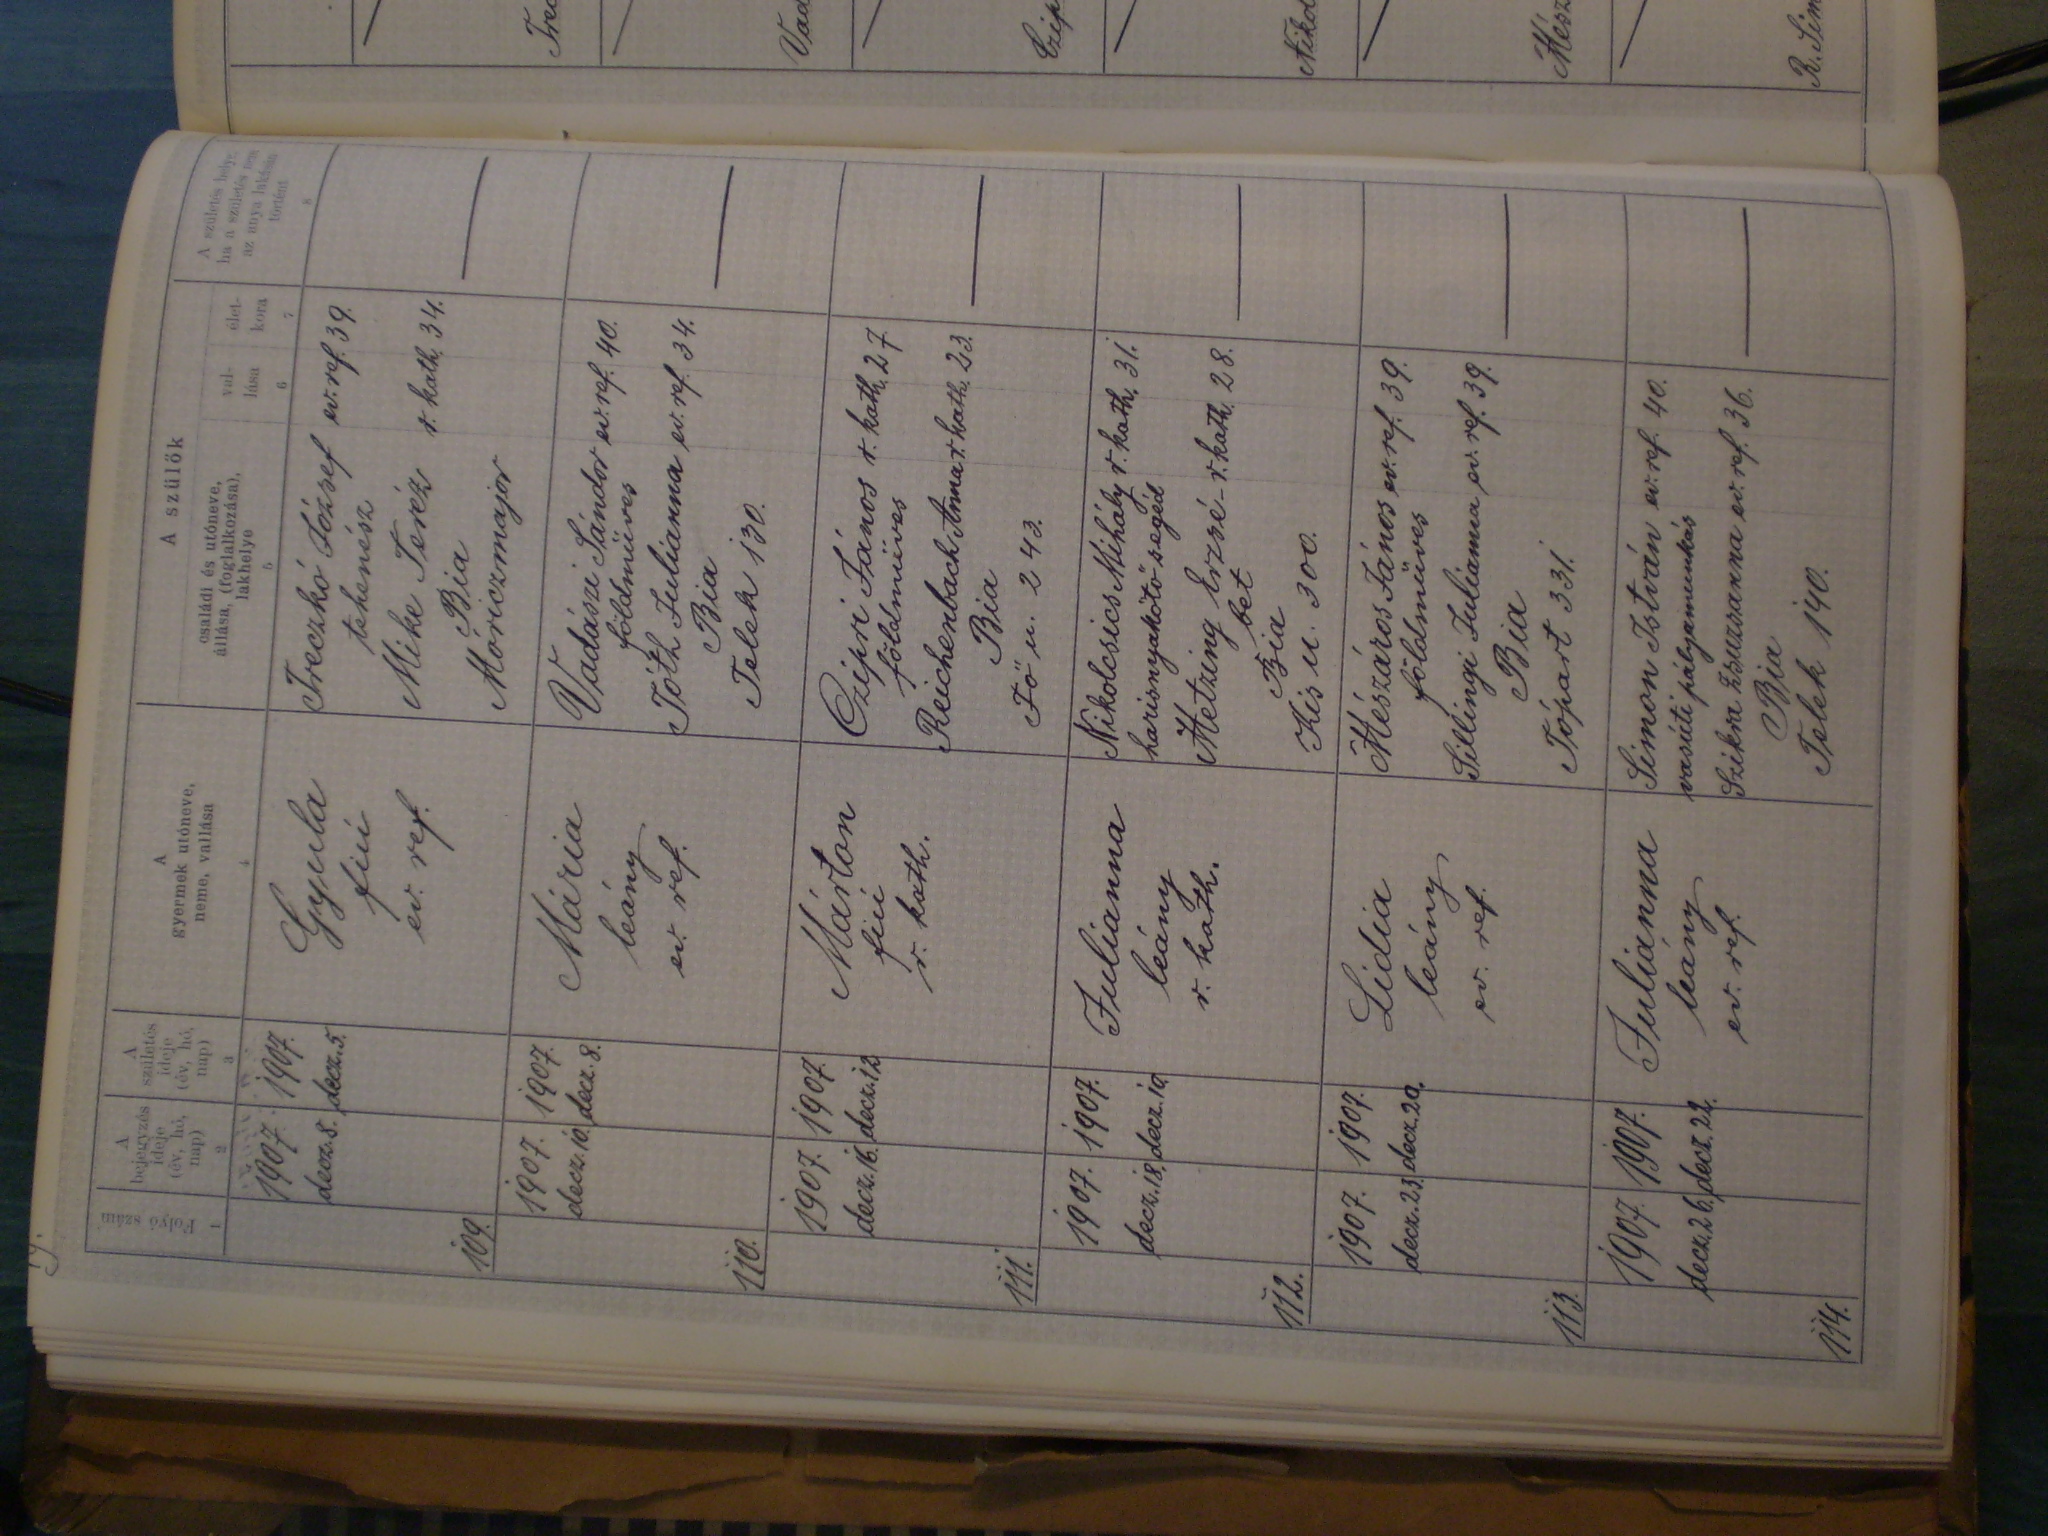 A szülők
Folyó szám
A
bejegyzés
ideje
(év, hó,
nap)
A
születés
ideje
(év, hó,
nap)
A
gyermek utóneve,
neme, vallása
családi és utóneve,
állása, (foglalkozása),
lakhelye
val-
lása
élet-
kora
A születés helye
ha a születés nem
az anya lakásán
történt
1
2
3
4
5
6
7
8
109.
1907.
decz. 8.
1907.
decz. 5.
Gyula
fiú
ev. ref.
Treczkó József ev. ref. 39.
tehenész
Mike Teréz r. kath. 34.
Bia
Móriczmajor
110.
1907.
decz. 10.
1907.
decz. 8.
Mária
leány
ev. ref.
Vadászi Sándor ev. ref. 40.
földműves
Tóth Julianna ev. ref. 34.
Bia
Telek 130.
111.
1907.
decz. 16.
1907.
decz. 12.
Márton
fiú
r. kath.
Czipri János r. kath. 27
földműves
Reichenbach Anna r. kath. 23.
Bia
Fő u. 243.
112.
1907.
decz. 18.
1907.
decz. 10.
Julianna
leány
r. kath.
Nikolcsics Mihály r. kath. 31.
harisnyakötő segéd
Metzing Erzsé- r. kath. 28.
bet
Bia
Kis u. 300.
113.
1907.
decz. 23.
1907.
decz. 20.
Lidia
leány
ev. ref.
Mészáros János ev. ref. 39.
földműves
Sillingi Julianna ev. ref. 39.
Bia
Tópart 331.
114.
1907.
decz. 26.
1907.
decz. 22.
Julianna
leány
ev. ref.
Simon István ev. ref. 40.
vasúti pályamunkás
Szikra Zsuzsanna ev. ref. 36.
Bia
Telek 140.
Trec
Vad
Czip
Nikol
Mész
R. Sim